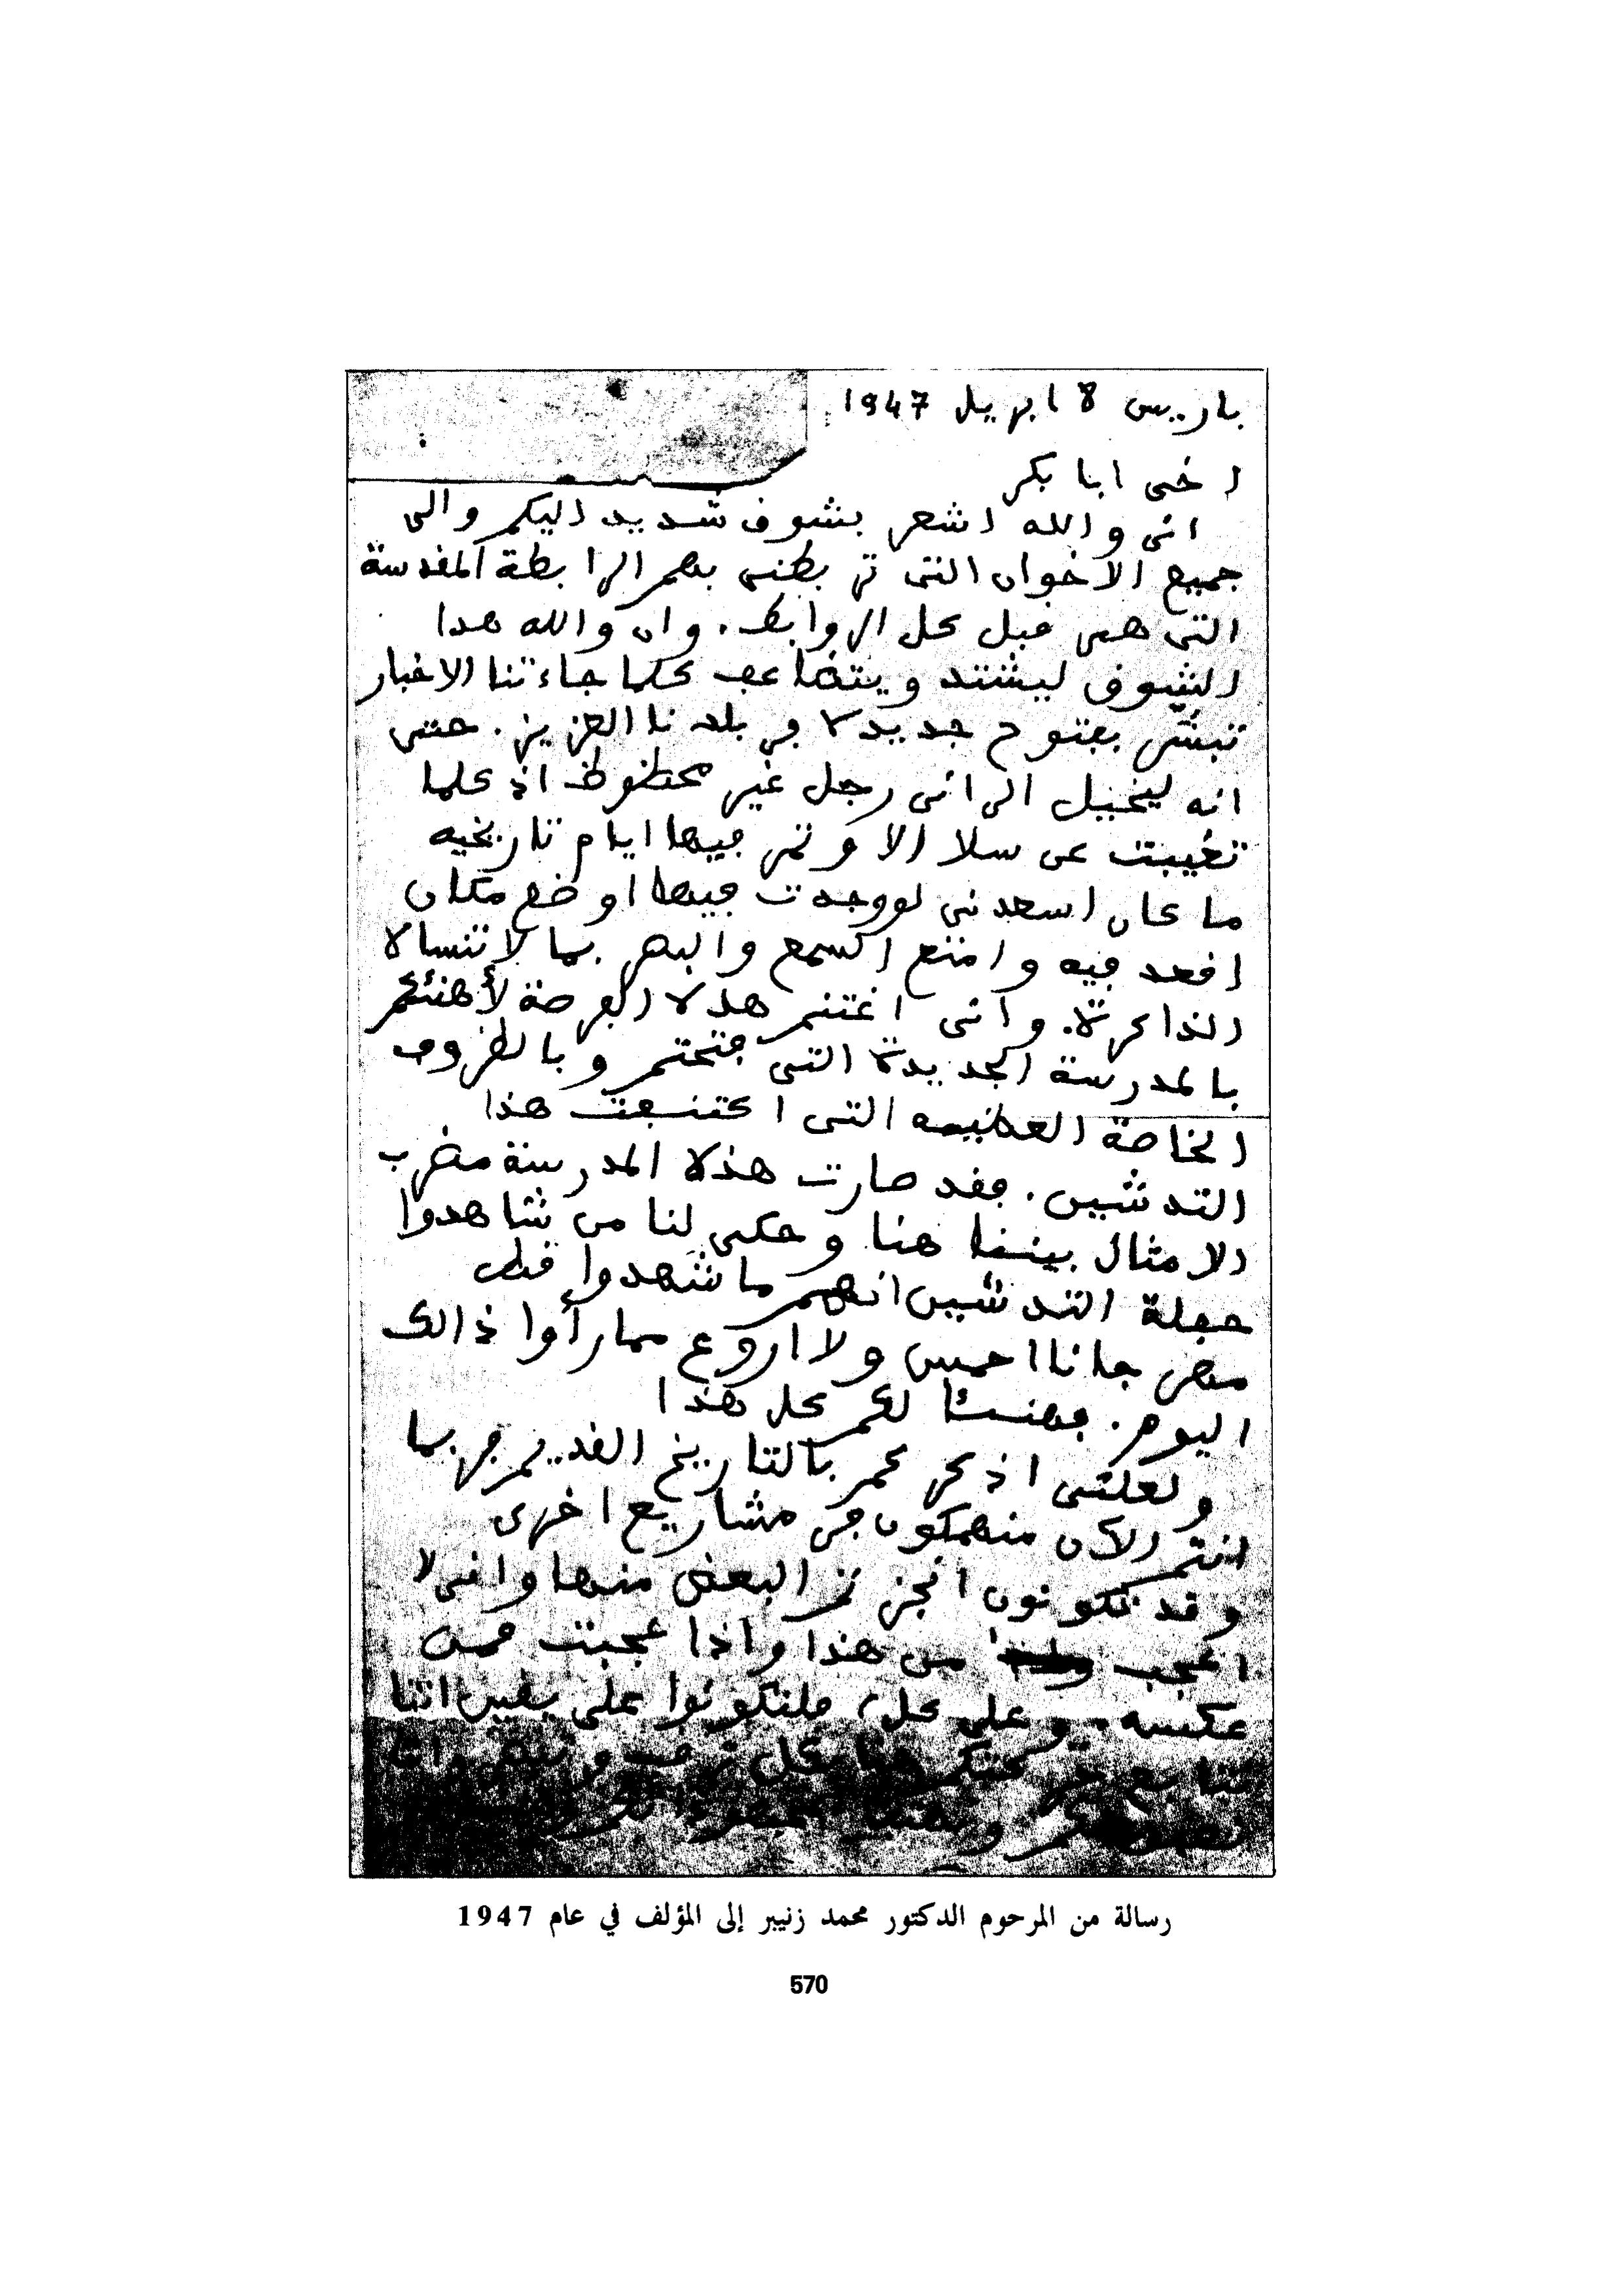 باريس 8 ابريل 1947
اخى ابا بكر
انى والله اشعر بشوق شديد اليكم والى
جميع الاخوان التى تربطنى بهم الرابطة المقدسة
التى هى قبل كل الروابط. وان والله هدا
الشوق ليشتد ويتضاعف كلما جاءتنا الاخبار
تبشر بفتوح جديدة في بلدنا العزيز. حتى
انه ليخيل الى انى رجل غير محظوظ اذ كلما
تغيبت عن سلا الا وتمر فيها ايام تاريخيه
ما كان اسعدنى لو وجدت فيها اوضع مكان
اقعد فيه وامتع السمع والبصر بما لا تنساه
الذاكرة. وانى اغتنم هذه الفرصة لأهنئكم
بالمدرسة الجديدة التى فتحتم وبالظروف
الخاصة العظيمه التى اكتنفت هذا
التدشين. فقد صارت هذه المدرسة مضرب
الامثال بيننا هنا وحكى لنا من شاهدوا
حفلة التدشين انهم ما شهدوا قط
مهرجانا احسن ولا اروع مما رأوا ذالك
اليوم. فهنيئا لكم كل هذا
ولعلنى اذكركم بالتاريخ القديم فربما
انتم الآن منهمكون في مشاريع اخرى
وقد تكونون انجزتم البعض منها وانى لا
اعجب من هذا واذا عجبت فمن
عكسه. وعلى كل، فلتكونوا على يقين اننا
نتابع حركتكم هنا بكل
رسالة من المرحوم الدكتور محمد زنيبر إلى المؤلف في عام 1947
570